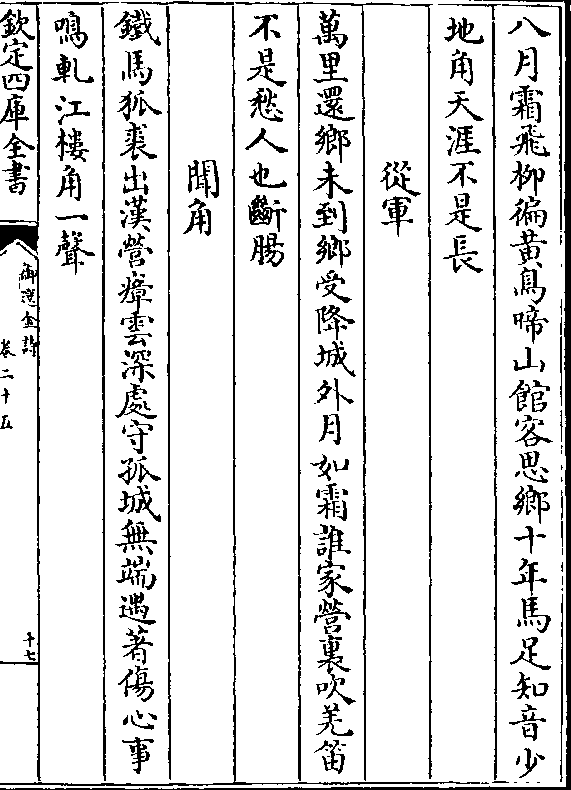 八月霜飛柳徧黄鳥啼山館客思鄉十年馬足知音少
地角天涯不是長
從軍
萬里還鄉未到鄉受降城外月如霜誰家營裏吹羌笛
不是愁人也斷腸
聞角
鐵馬狐裘出漢營瘴雲深處守孤城無端遇著傷心事
鳴軋江樓角一聲
欽定四庫全書
御選金詩
卷二十五
十七